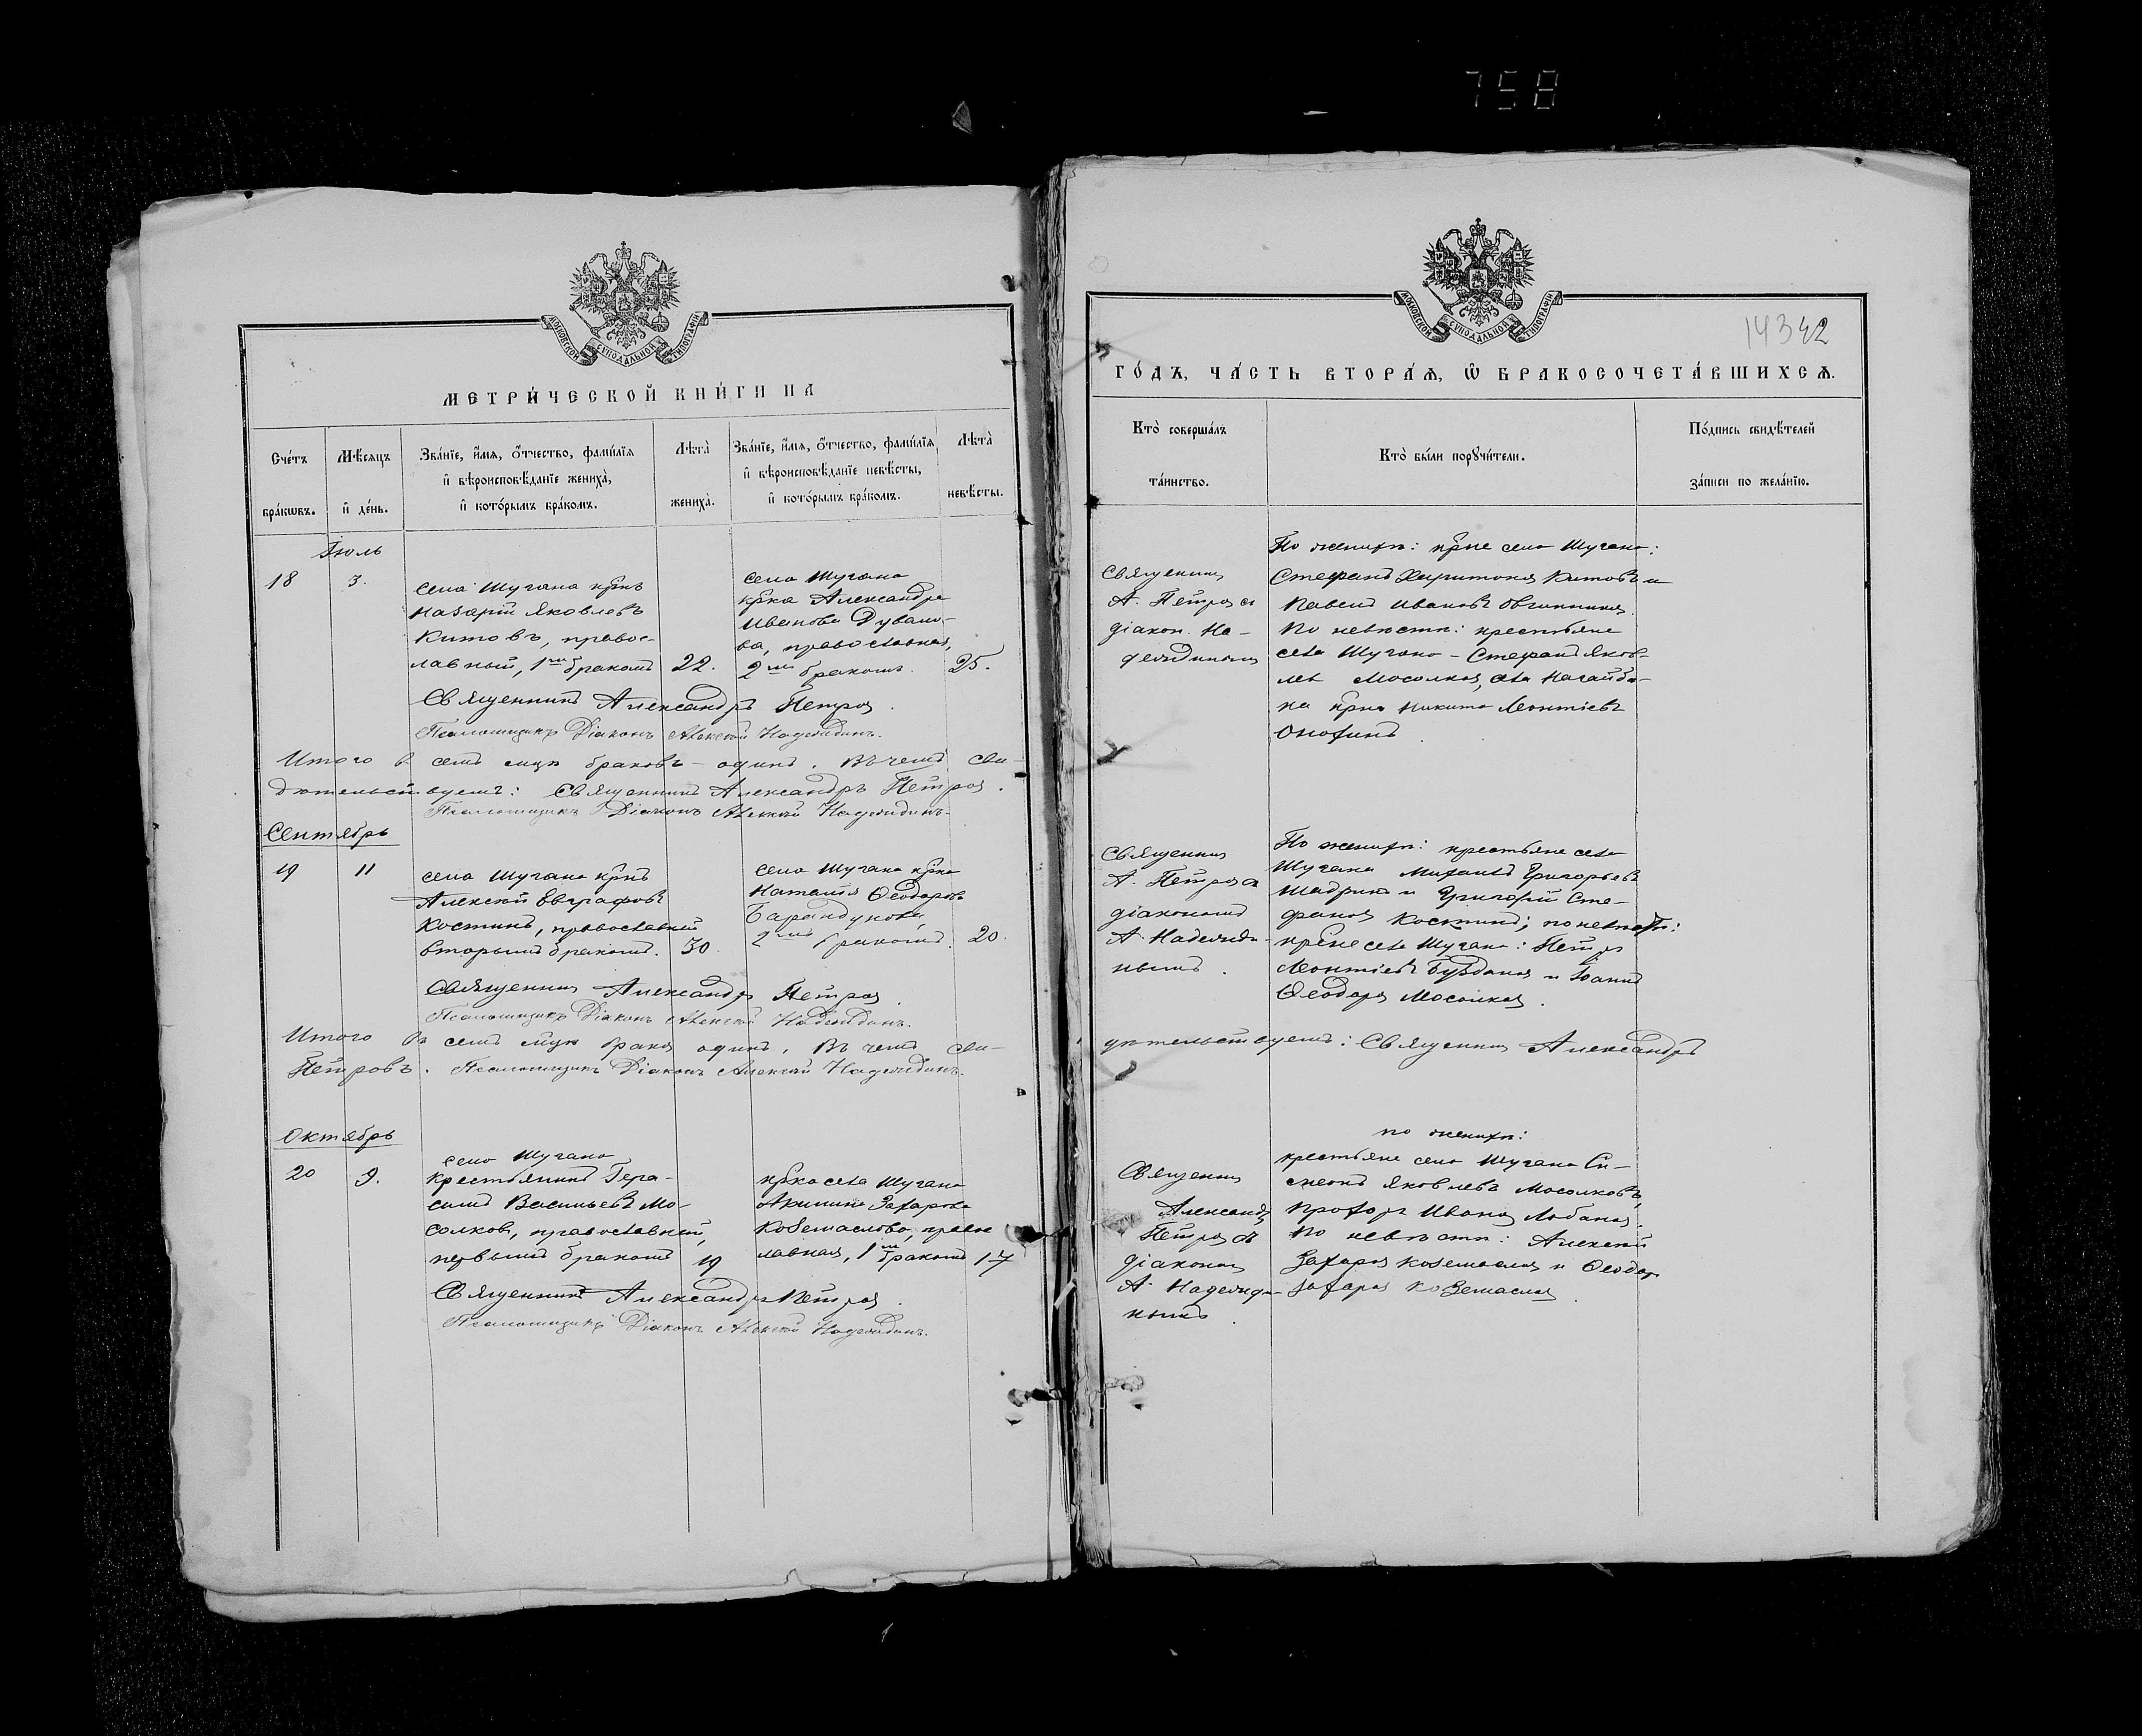 758
МОСКОВСКОЙ СѴНОДАЛЬНОЙ ТИПОГРАФІИ
МЕТРИ́ЧЕСКОЙ КНИ́ГИ НА
Сче́тъ бра́кѡвъ.
Мѣ́сяцъ и҆ де́нь.
Зва́нїе, и҆́мѧ, ѻ҆́тчество, фами́лїѧ
и҆ вѣроисповѣ́данїе жениха̀,
и҆ кото́рымъ бра́комъ.
Лѣта̀ жениха̀.
Зва́нїе, и҆́мѧ, ѻ҆́тчество, фами́лїѧ
и҆ вѣроисповѣ́данїе невѣ́сты,
и҆ кото́рымъ бра́комъ.
Лѣта̀ невѣ́сты.
Іюль
18
3.
села Шугана крнъ
Назарій Яковлевъ
Китовъ, правос-
лавный, 1мъ бракомъ
22.
села Шугана
крка Александра
Иванова Дувано-
ва, православная,
2мъ бракомъ
25.
Священникъ Александръ Петровъ.
Псаломщикъ Діаконъ Алексѣй Надеждинъ.
Итого въ семъ мцѣ браковъ – одинъ. Въ чемъ сви-
дѣтельствуемъ: Священникъ Александръ Петровъ.
Псаломщикъ Діаконъ Алексѣй Надеждинъ.
Сентябрь
19
11
села Шугана крнъ
Алексѣй Евграфовъ
Костинъ, православный
вторымъ бракомъ.
30.
села Шугана крка
Наталія Ѳеодорова
Барандукова
2мъ бракомъ.
20.
Священникъ Александръ Петровъ.
Псаломщикъ Діаконъ Алексѣй Надеждинъ.
Итого въ семъ мцѣ бракъ одинъ. Въ чемъ сви-
Петровъ. Псаломщикъ Діаконъ Алексѣй Надеждинъ.
Октябрь
20
9.
села Шугана
крестьянинъ Гера-
симъ Васильевъ Мо-
солковъ, православный,
первымъ бракомъ
19
крка села Шугана
Акилина Захарова
Коземаслова, правос
лавная, 1мъ бракомъ
17
Священникъ Александръ Петровъ.
Псаломщикъ Діаконъ Алексѣй Надеждинъ.
МОСКОВСКОЙ СѴНОДАЛЬНОЙ ТИПОГРАФІИ
143 42
ГО́ДЪ, ЧА́СТЬ ВТОРА́Ѧ, Ѡ҆ БРАКОСОЧЕТА́ВШИХСѦ.
Кто̀ соверша́лъ
та́инство.
Кто̀ бы́ли порꙋчи́тели.
По́дпись свидѣ́телей
за́писи по жела́нїю.
Священникъ
А. Петровъ съ
діакон. На-
деждинымъ
По женихѣ: крне села Шугана:
Стефанъ Харитоновъ Китовъ и
Павелъ Ивановъ Овчинниковъ.
По невѣстѣ: крестьяне
села Шугана – Стефанъ Яков-
левъ Мосолковъ, села Нагайба-
ка крнъ Никита Леонтіевъ
Онохинъ.
Священникъ
А. Петровъ съ
діакономъ
А. Надежди-
нымъ.
По женихѣ: крестьяне села
Шугана Михаилъ Григорьевъ
Шадринъ и Григорій Сте-
фановъ Костинъ; по невѣстѣ:
крне села Шугана: Петръ
Леонтіевъ и Іоаннъ
Ѳеодоровъ Мосолковъ.
дѣтельствуемъ: Священникъ Александръ
по женихѣ:
Священникъ
Александръ
Петровъ съ
діакономъ
А. Надежди-
нымъ.
крестьяне села Шугана Си-
меонъ Яковлевъ Мосолковъ,
Прохоръ Ивановъ Лобановъ.
По невѣстѣ: Алексѣй
Захаровъ Коземасловъ и Ѳеодоръ
Захаровъ Коземасловъ.